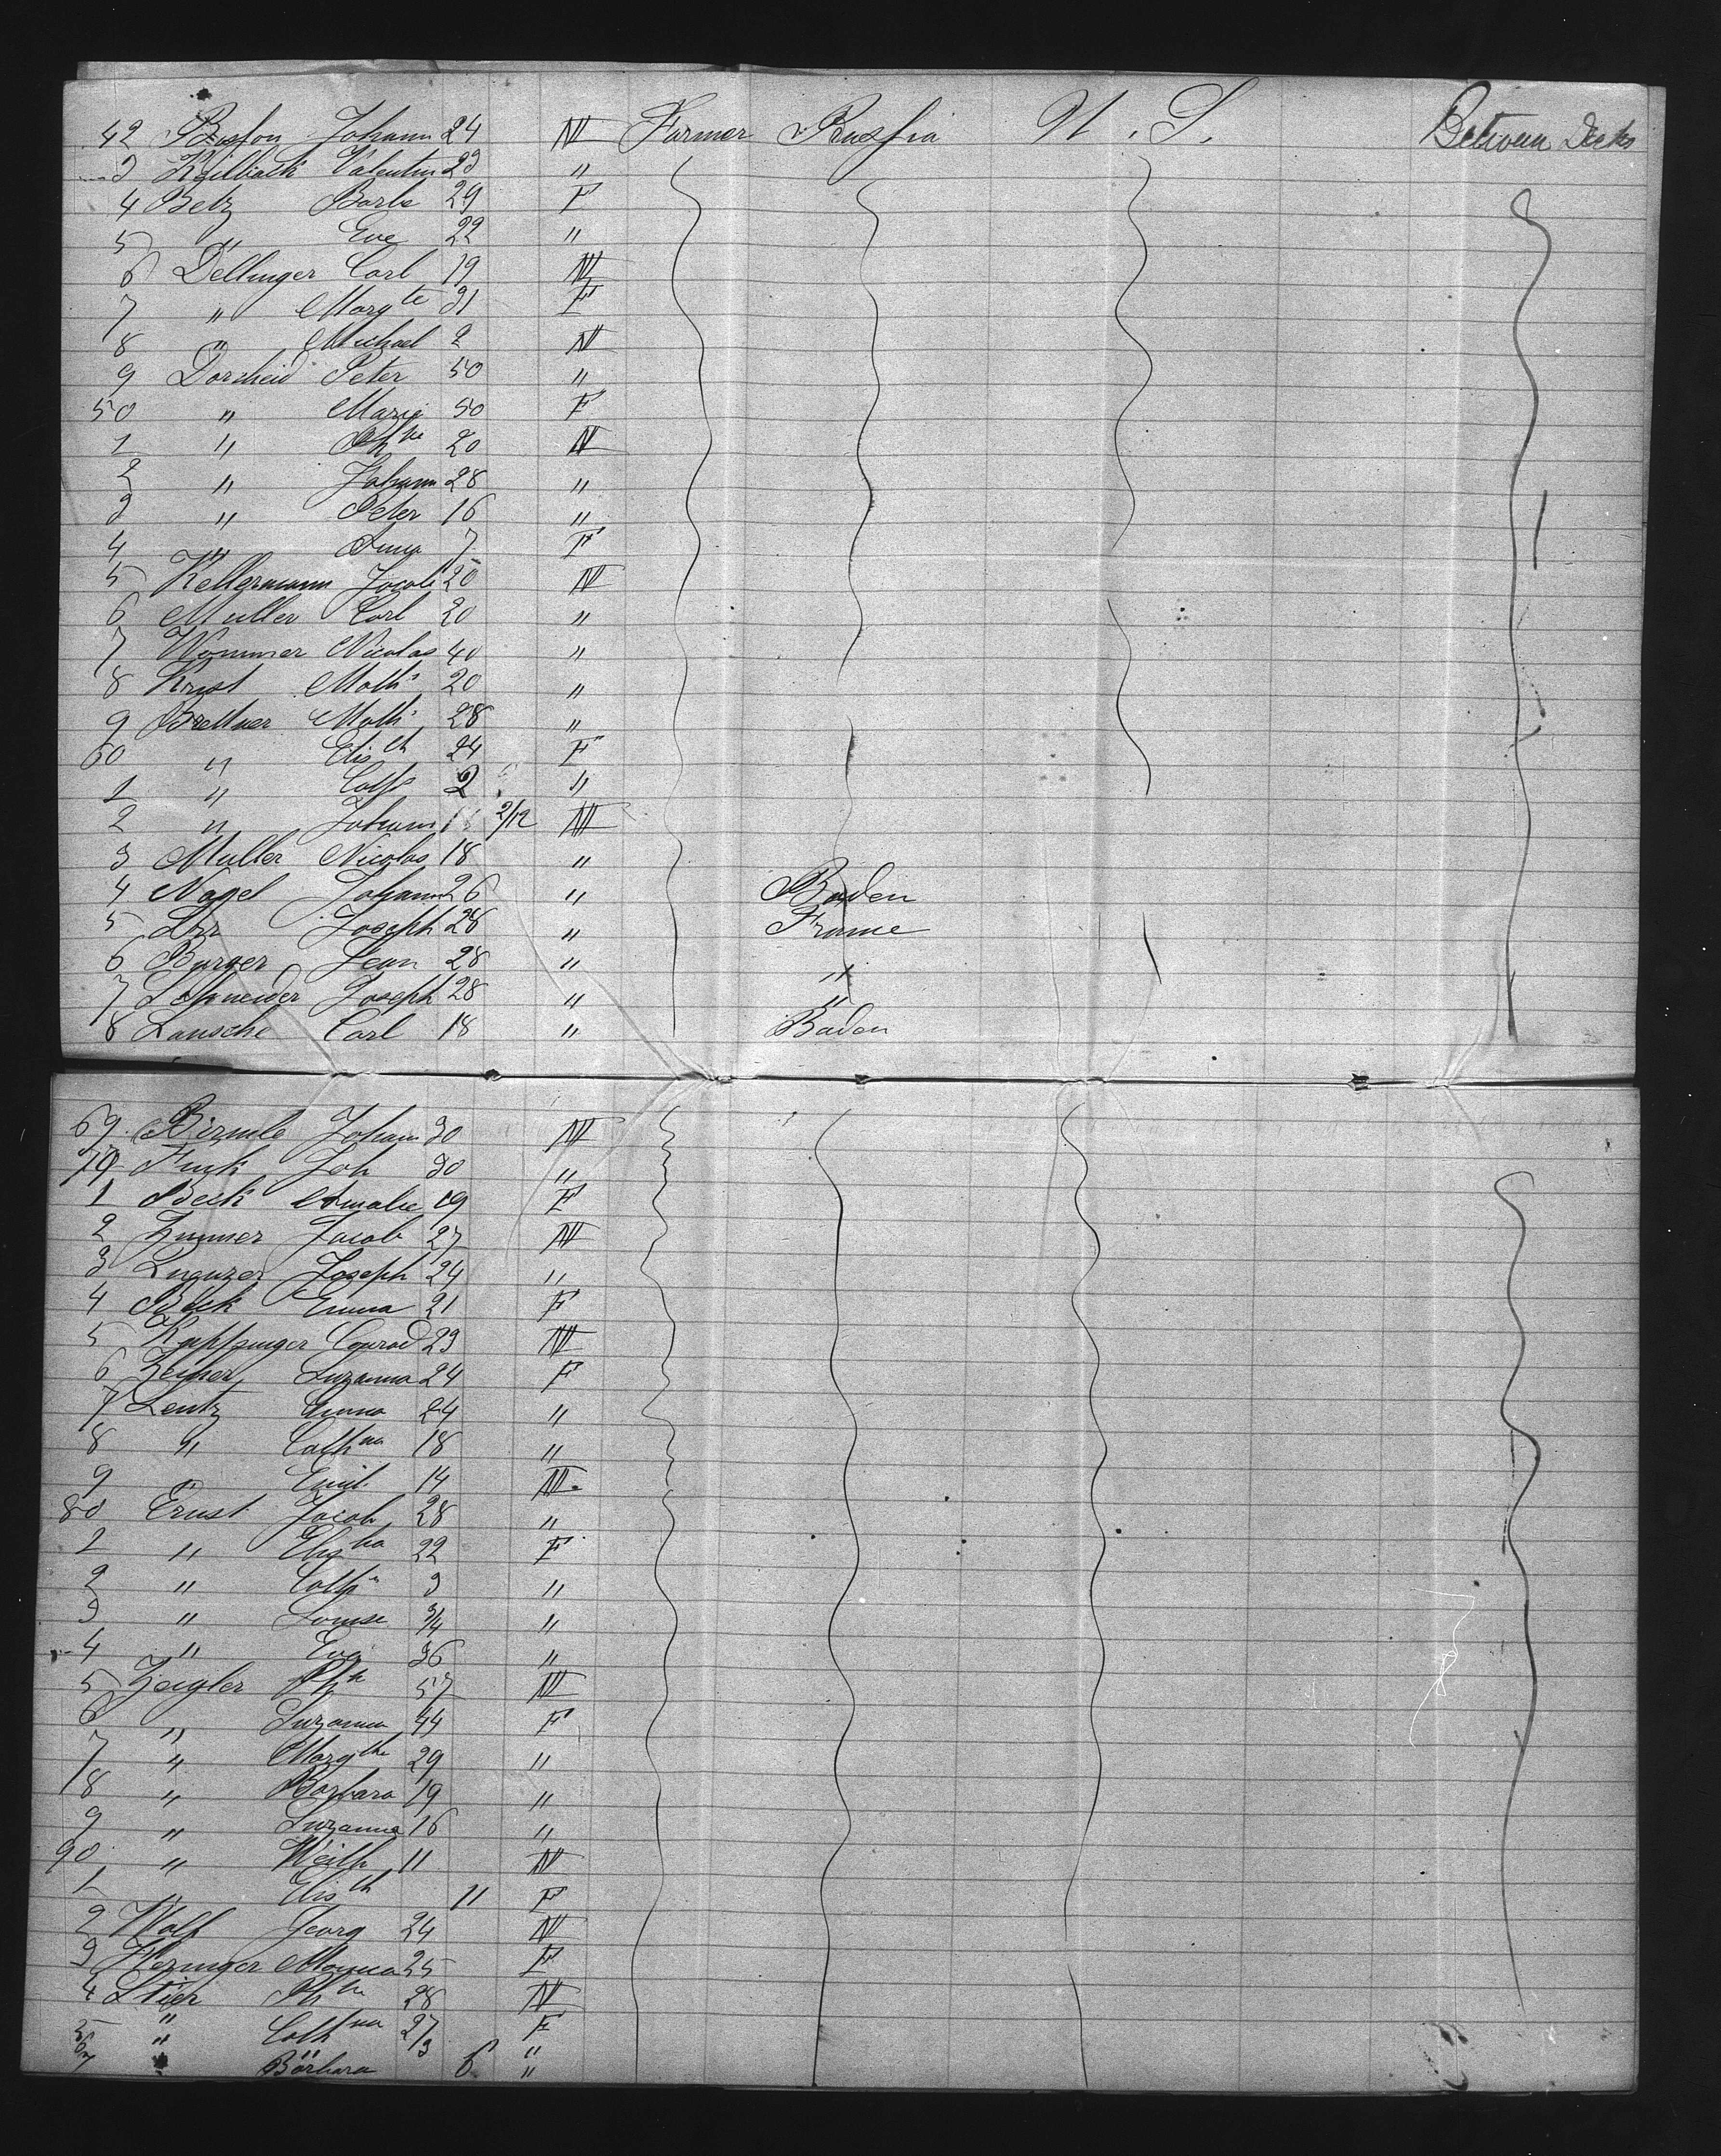 42 Johann 24 M Farmer Prussia U. S. Between Decks
3 Valentin 23 "
4 Betz Barb 29 F
5 " Eve 22 "
6 Dellinger Carl 19 M
7 " Margte 31 F
8 " Michael 2 M
9 Dorcheid Peter 50 "
50 " Maria 50 F
1 " 20 M
2 " Johann 28 "
3 " Peter 16 "
4 " 7 F
5 Kellermann Jacob 20 M
6 Muller Carl 20 "
7 Wommer Nicolas 40 "
8 Krist Math 20 "
9 Brettner Math 28 "
60 " Elisth 24 F
1 " Cath 2 "
2 " Johann 2/12 M
3 Muller Nicolas 18 "
4 Nagel Johann 26 " Baden
5 Joseph 28 " France
6 Burger Jean 28 " "
7 Schneider Joseph 28 " "
8 Lansche Carl 18 " Baden
69 Johann 30 M
70 Funk Joh 30 "
1 Beck Amalie 19 F
2 Zimmer Jacob 27 M
3 Joseph 24 "
4 Beck Emma 21 F
5 Conrad 23 M
6 Suzanna 24 F
7 Lentz Anna 24 "
8 " Cathna 18 "
9 " Emil 14 M
80 Ernst Jacob 28 "
1 " 22 F
2 " Cath 3 "
3 " Louise 3/4 "
4 " Eva 36 "
5 Zeigler 57 M
6 " Suzanna 44 F
7 " Margthe 29 "
8 " Barbara 19 "
9 " Suzanna 16 "
90 " 11 M
1 " Elisth 11 F
2 Wolf Georg 24 M
3 25 F
4 Stier 28 M
5 " Cathna 27 F
6 " 3 "
7 " Barbara 6 "